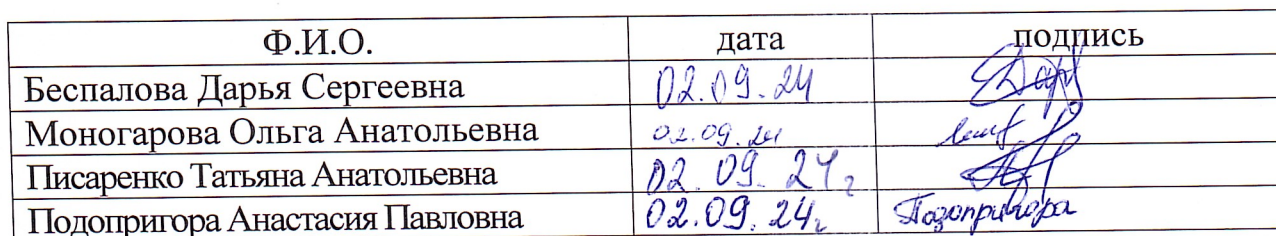 Ф.И.О. дата подпись
Беспалова Дарья Сергеевна 02.09.24
Моногарова Ольга Анатольевна 02.09.24
Писаренко Татьяна Анатольевна 02.09.24г
Подопригора Анастасия Павловна 02.09.24г. Подопригора